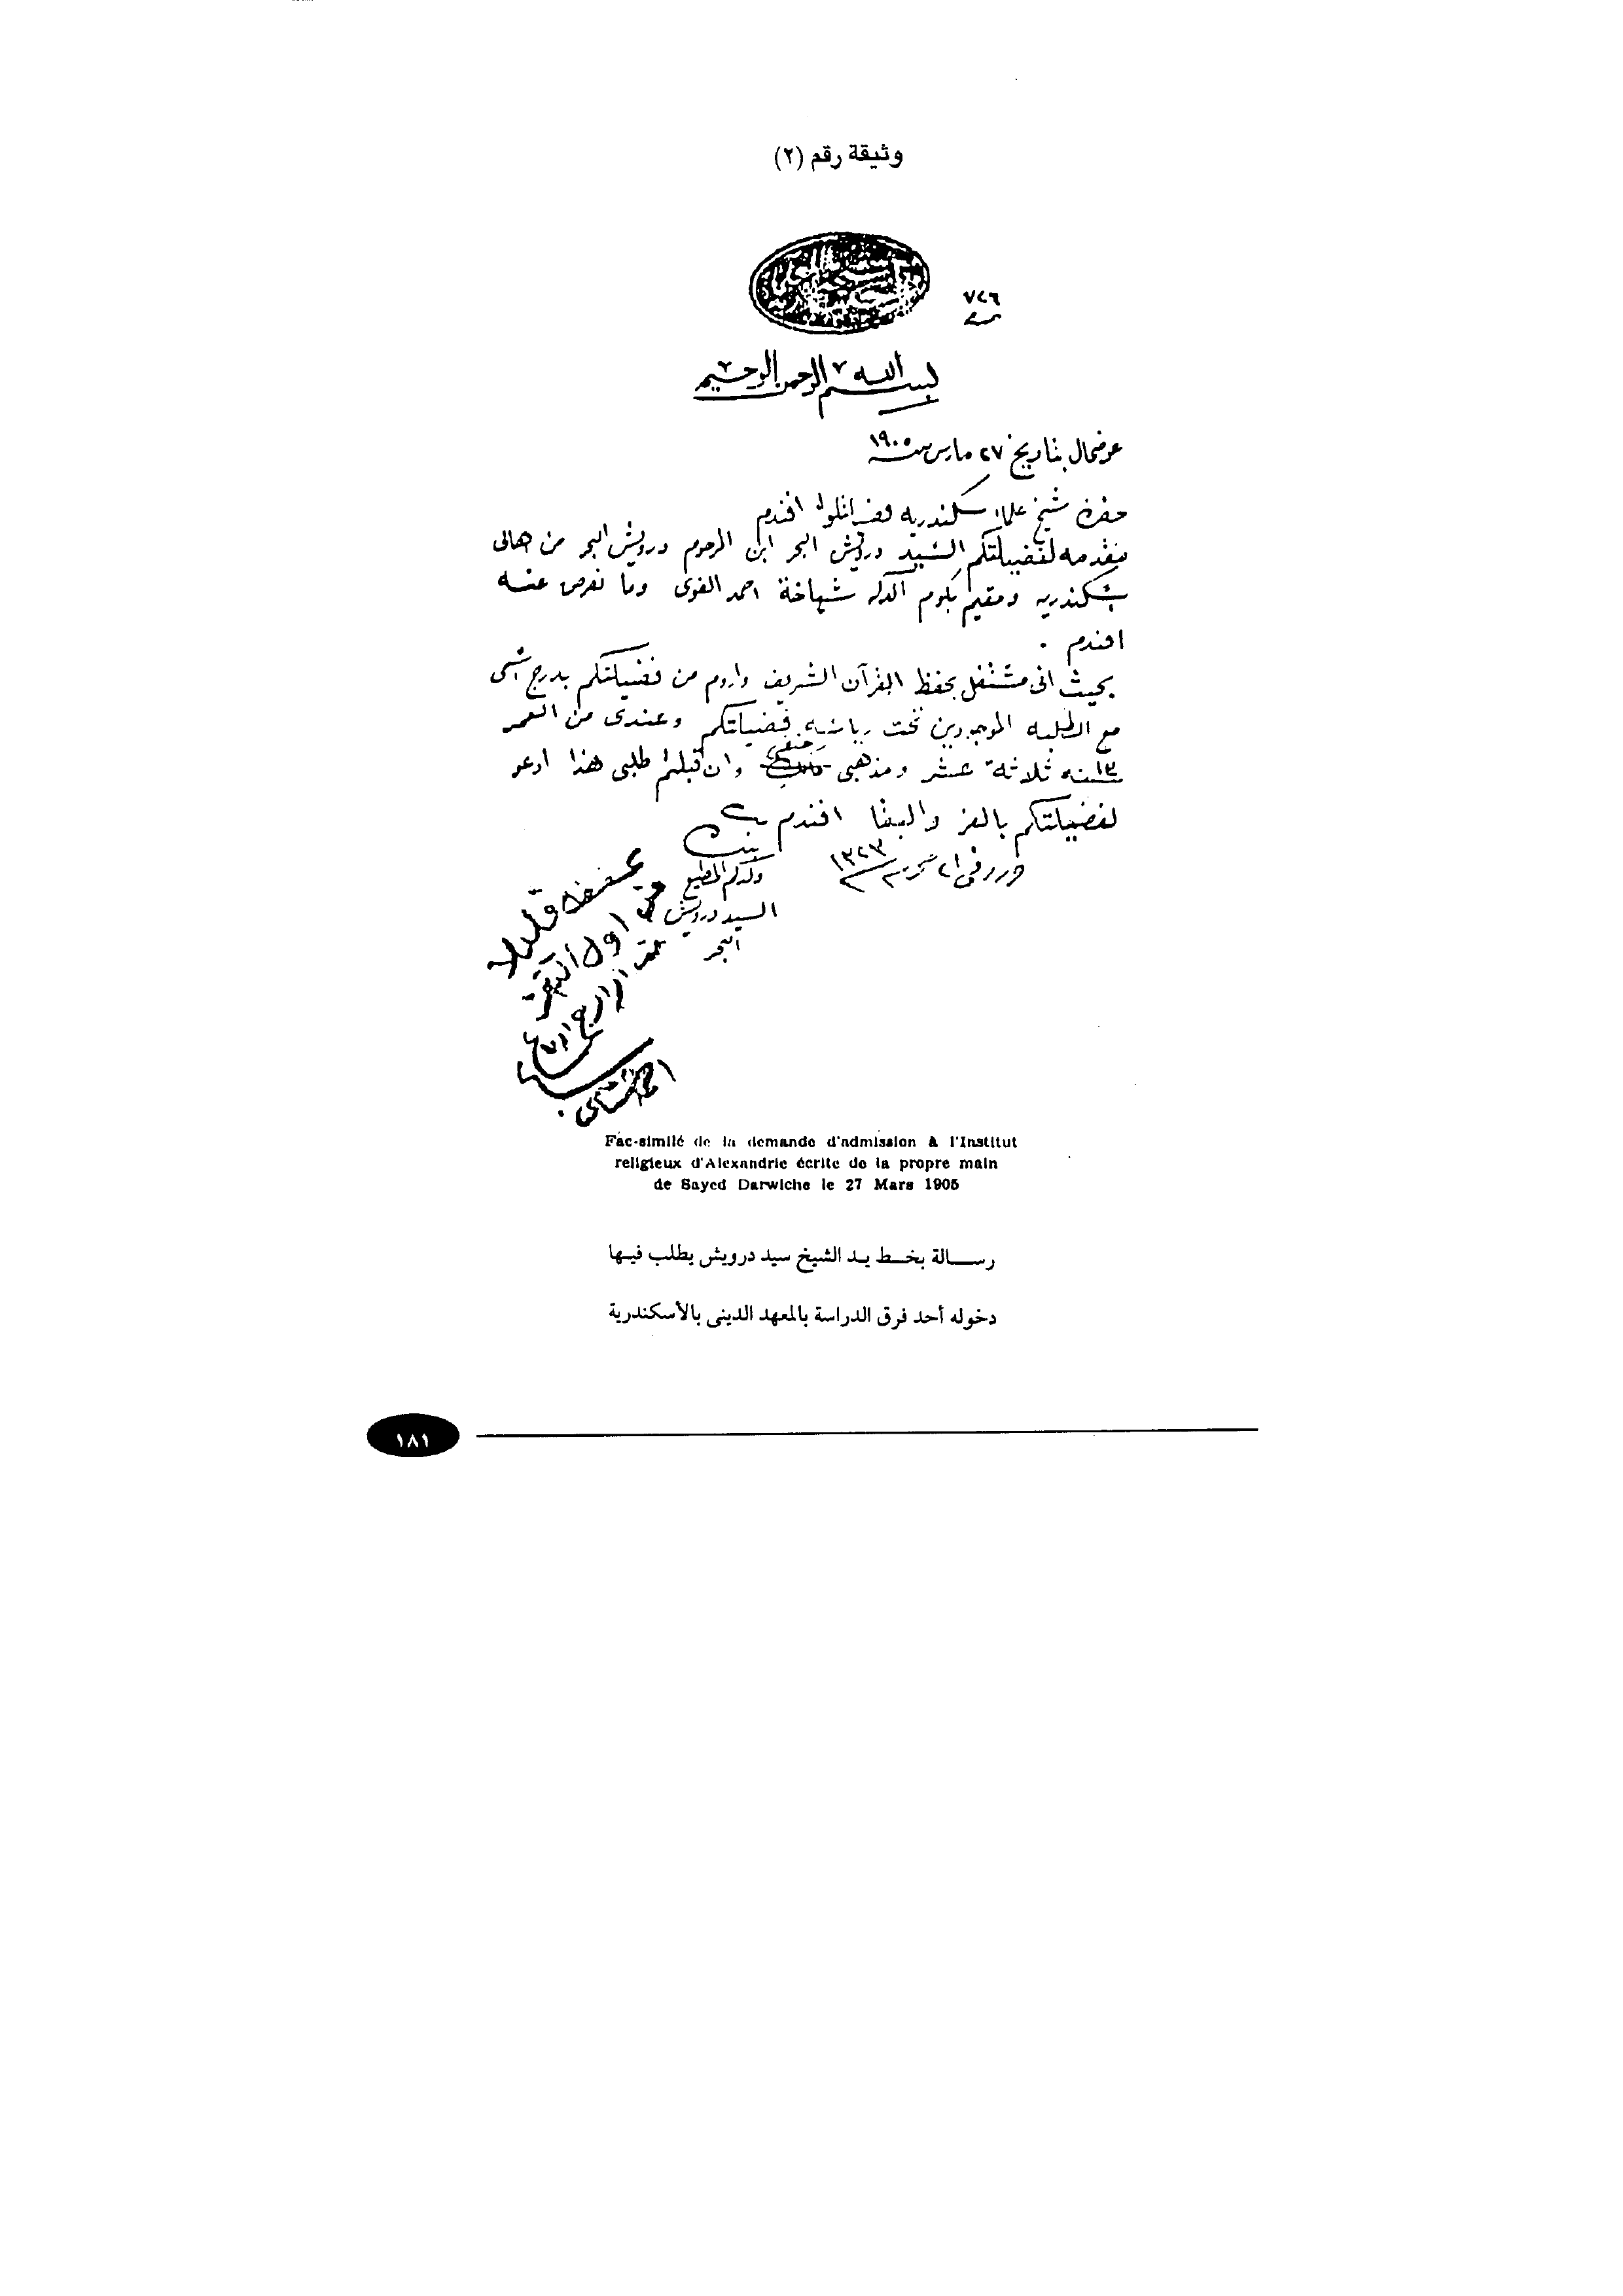 وثيقة رقم (٢)
٧٢٦
بسم الله الرحمن الرحيم
عرضحال بتاريخ ٢٧ مارس سنة ١٩٠٥
حضرة شيخ علماء سكندريه فضيلتلو افندم
مقدمه لفضيلتكم السيد درويش البحر ابن المرحوم درويش البحر من هالى
سكندريه ومقيم بكوم الدكه شياخة احمد الفوى وما نعرض عنه
افندم .
بحيث انى مشتغل بحفظ القرآن الشريف واروم من فضيلتكم بدرج اسمى
مع الطلبه الموجودين تحت رياسة فضيلتكم وعندى من العمر
١٣ سنه ثلاثة عشر ومذهبى حنفى وان قبلتم طلبى هذا ادعو
لفضيلتكم بالعز والبقا افندم
ورد فى ٢١ محرم سنة ١٣٢٣
ولدكم المطيع
السيد درويش
البحر
يحفظه قليلا
من اول البقرة
Fac-similé de la demande d'admission à l'Institut
religieux d'Alexandrie écrite de la propre main
de Sayed Darwiche le 27 Mars 1905
رسالة بخط يد الشيخ سيد درويش يطلب فيها
دخوله أحد فرق الدراسة بالمعهد الدينى بالأسكندرية
١٨١